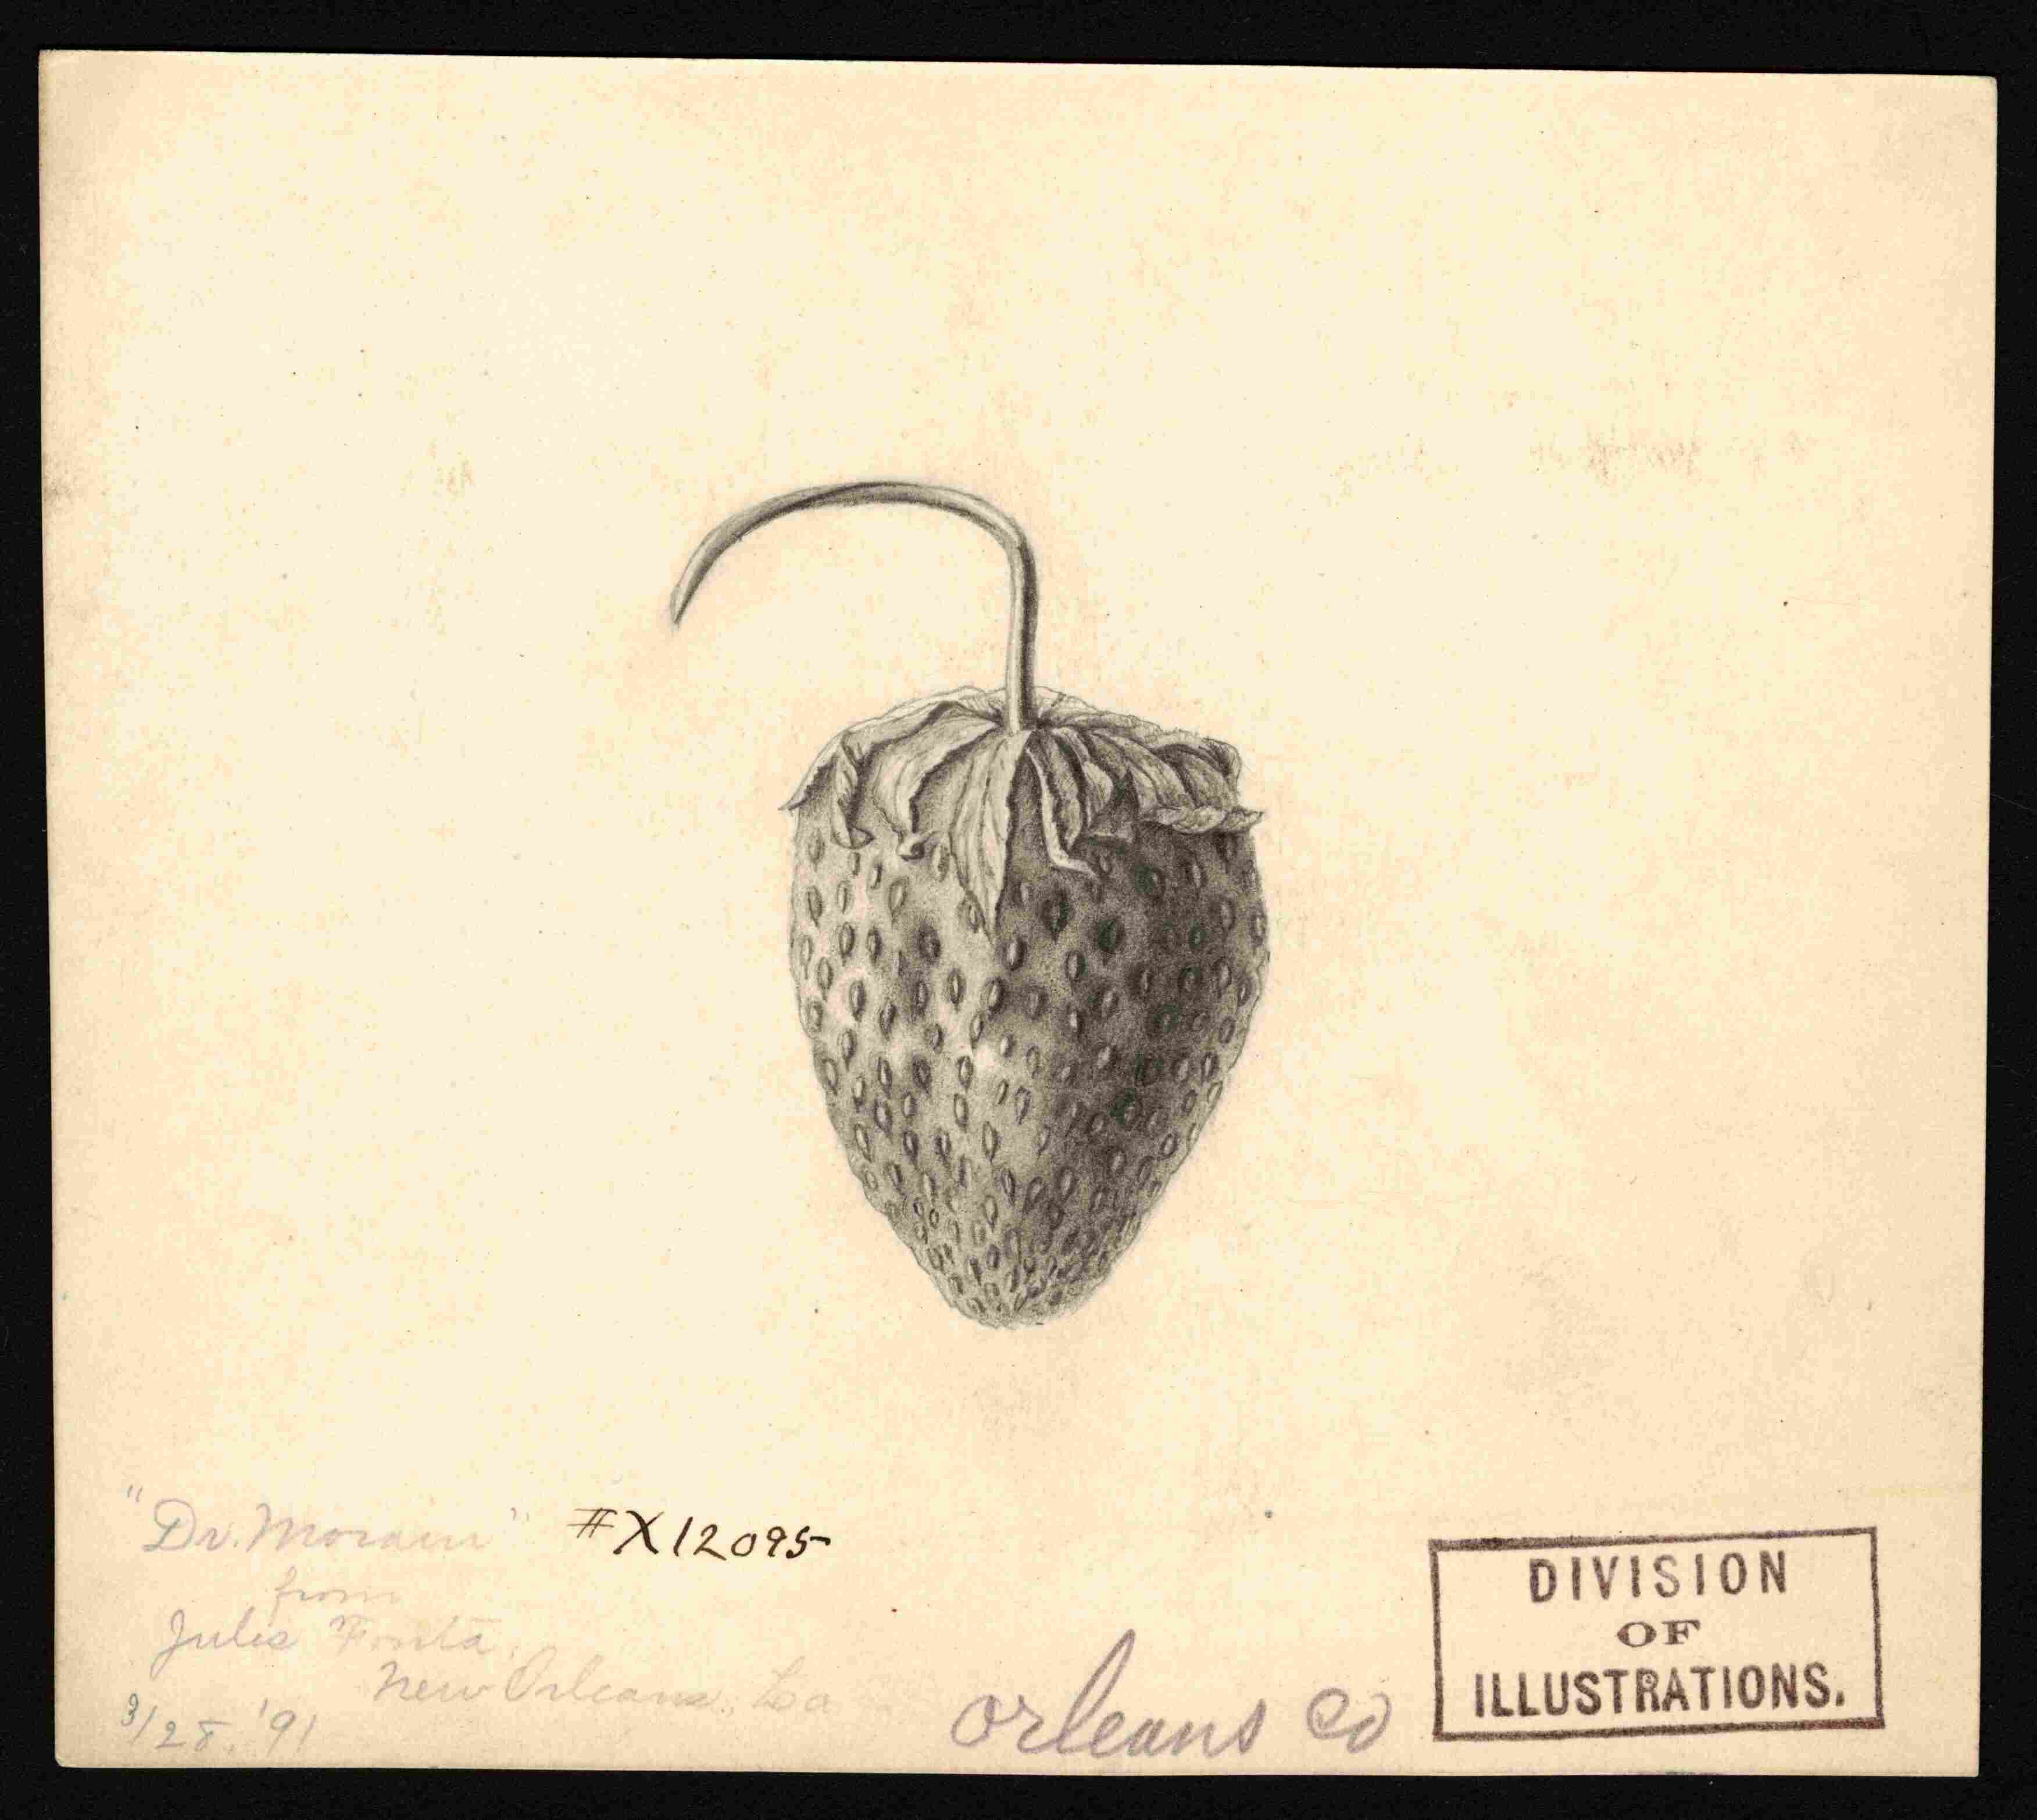 "Dr. Morain"
#X12095
from
Jules Fonta,
New Orleans, La
3/28, '91
Orleans Co
DIVISION
OF
ILLUSTRATIONS.